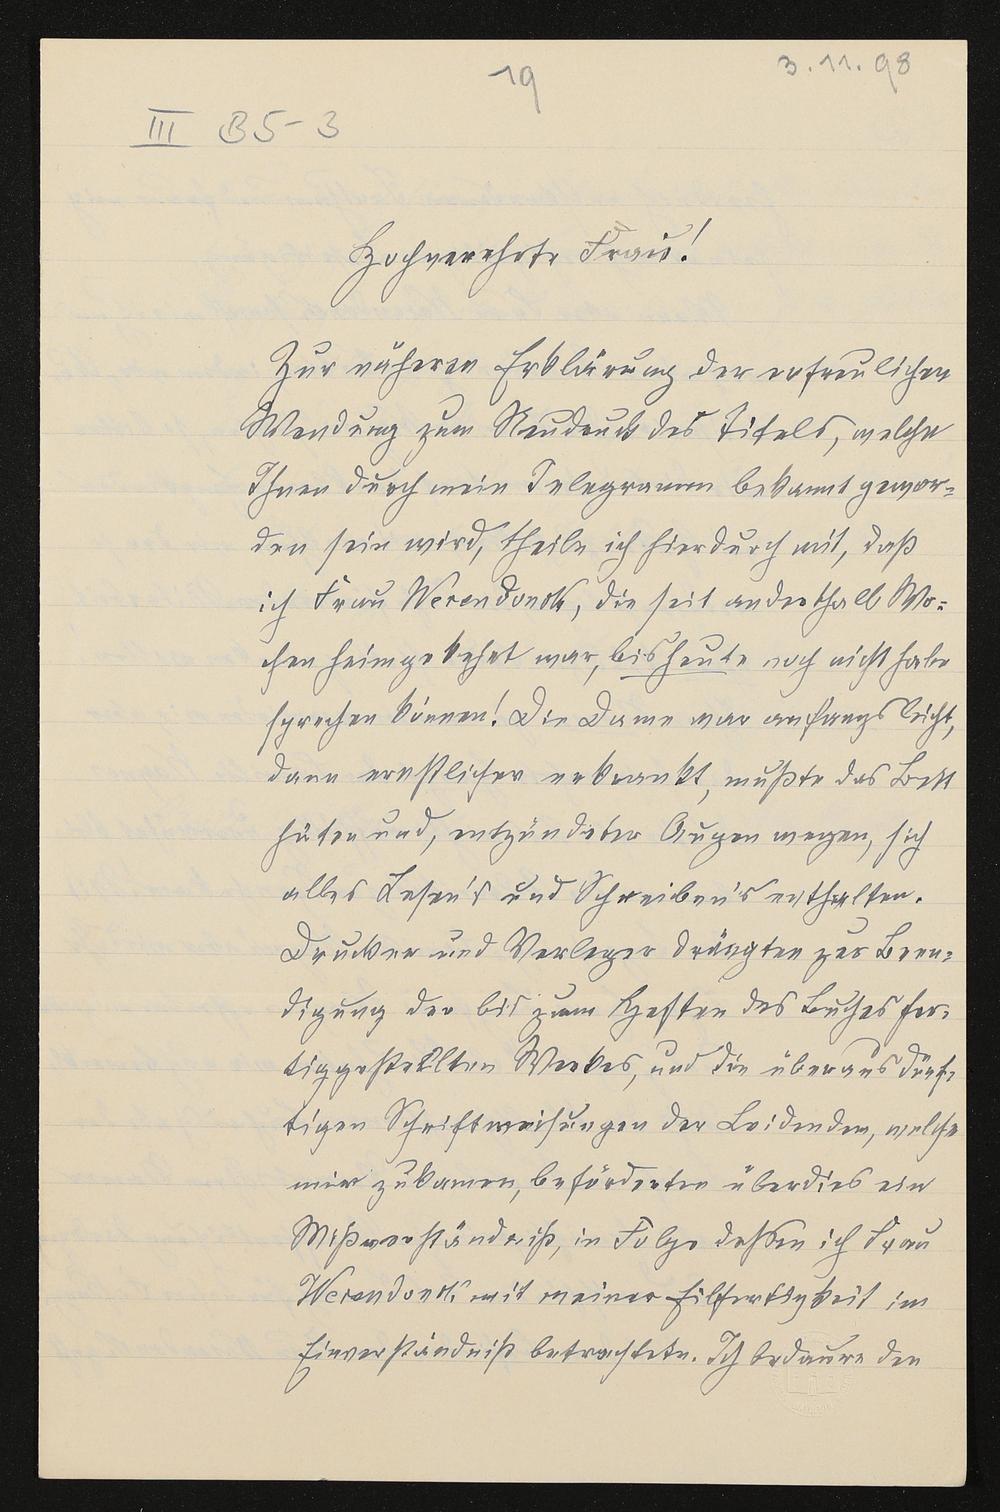 19
3.11.98
III B5-3
Hochverehrte Frau!
Zur näheren Erklärung der erfreulichen
Wendung zum Neudruck des Titels, welche
Ihnen durch mein Telegramm bekannt gewor=
den sein wird, theile ich hierdurch mit, daß
ich Frau Wesendonck, die seit anderthalb Wo=
chen heimgekehrt war, bis heute noch nicht habe
sprechen können! Die Dame war anfangs leicht,
dann ernstlicher erkrankt, mußte das Bett
hüten und, entzündeter Augen wegen, sich
alles Lesen's und Schreiben's enthalten.
Drucker und Verleger drängten zur Been=
digung des bis zum Heften des Buches fer=
tiggestellten Werkes, und die überaus dürf=
tigen Schriftweisungen der Leidenden, welche
mir zukamen, beförderten überdies ein
Mißverständniß, in Folge dessen ich Frau
Wesendonck mit meiner Eilfertigkeit im
Einverständniß betrachtete. Ich bedaure den